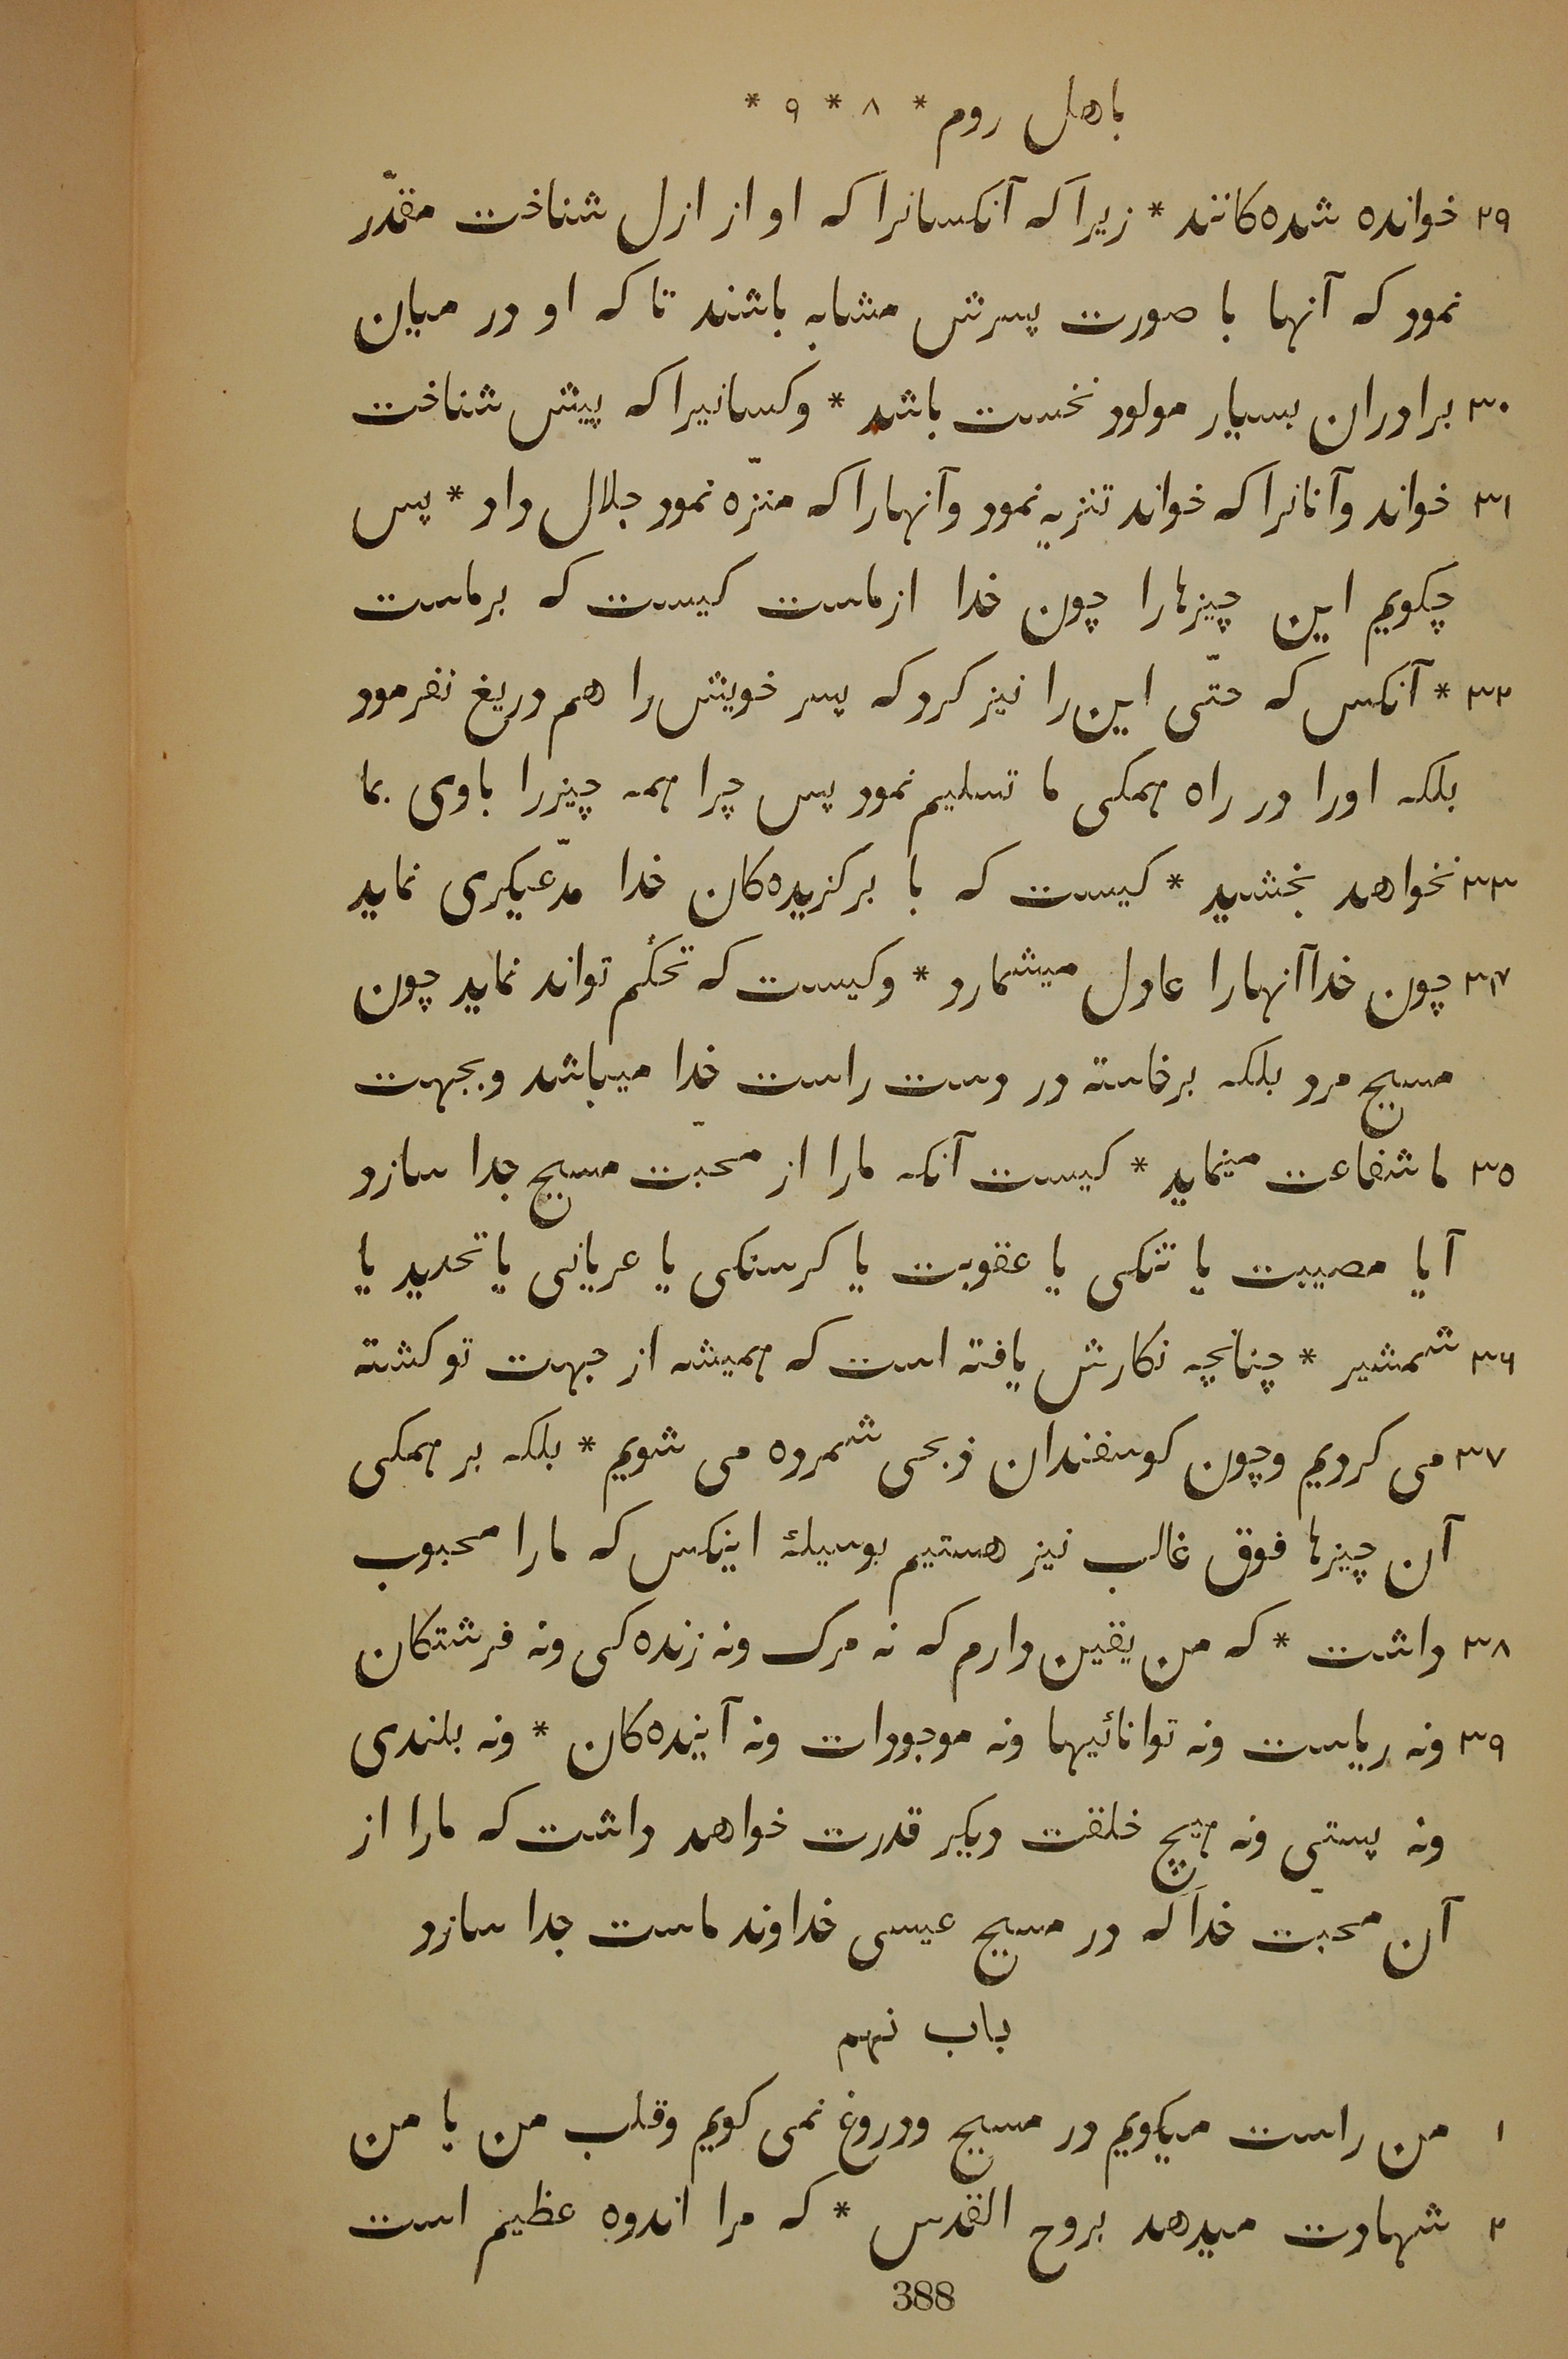 باهل روم * ۸ * ۹ *
۲۹ خوانده شده‌کانند * زیرا که آنکسانرا که او از ازل شناخت مقدّر
نمود که آنها با صورت پسرش مشابه باشند تا که او در میان
۳۰ برادران بسیار مولود نخست باشد * وکسانیرا که پیش شناخت
۳۱ خواند وآنانرا که خواند تنزیه نمود وآنهارا که منزّه نمود جلال داد * پس
چکویم این چیزهارا چون خدا ازماست کیست که برماست
۳۲ * آنکس که حتّی این را نیز کرد که پسر خویش را هم دریغ نفرمود
بلکه اورا در راه همکی ما تسلیم نمود پس چرا همه چیزرا باوی بما
۳۳ نخواهد بخشید * کیست که با برکزیده‌کان خدا مدّعیکری نماید
۳۴ چون خدا آنهارا عادل میشمارد * وکیست که تحکّم تواند نماید چون
مسیح مرد بلکه برخاسته در دست راست خدا میباشد وبجهت
۳۵ ما شفاعت مینماید * کیست آنکه مارا از محبّت مسیح جدا سازد
آیا مصیبت یا تنکی یا عقوبت یا کرسنکی یا عریانی یا تحدید یا
۳۶ شمشیر * چنانچه نکارش یافته است که همیشه از جهت تو کشته
۳۷ می کردیم وچون کوسفندان ذبحی شمرده می شویم * بلکه بر همکی
آن چیزها فوق غالب نیز هستیم بوسیلهٔ اینکس که مارا محبوب
۳۸ داشت * که من یقین دارم که نه مرک ونه زنده‌کی ونه فرشتکان
۳۹ ونه ریاست ونه توانائیها ونه موجودات ونه آینده‌کان * ونه بلندی
ونه پستی ونه هیچ خلقت دیکر قدرت خواهد داشت که مارا از
آن محبّت خدا که در مسیح عیسی خداوند ماست جدا سازد
باب نهم
۱ من راست میکویم در مسیح ودروغ نمی کویم وقلب من با من
۲ شهادت میدهد بروح القدس * که مرا اندوه عظیم است
388